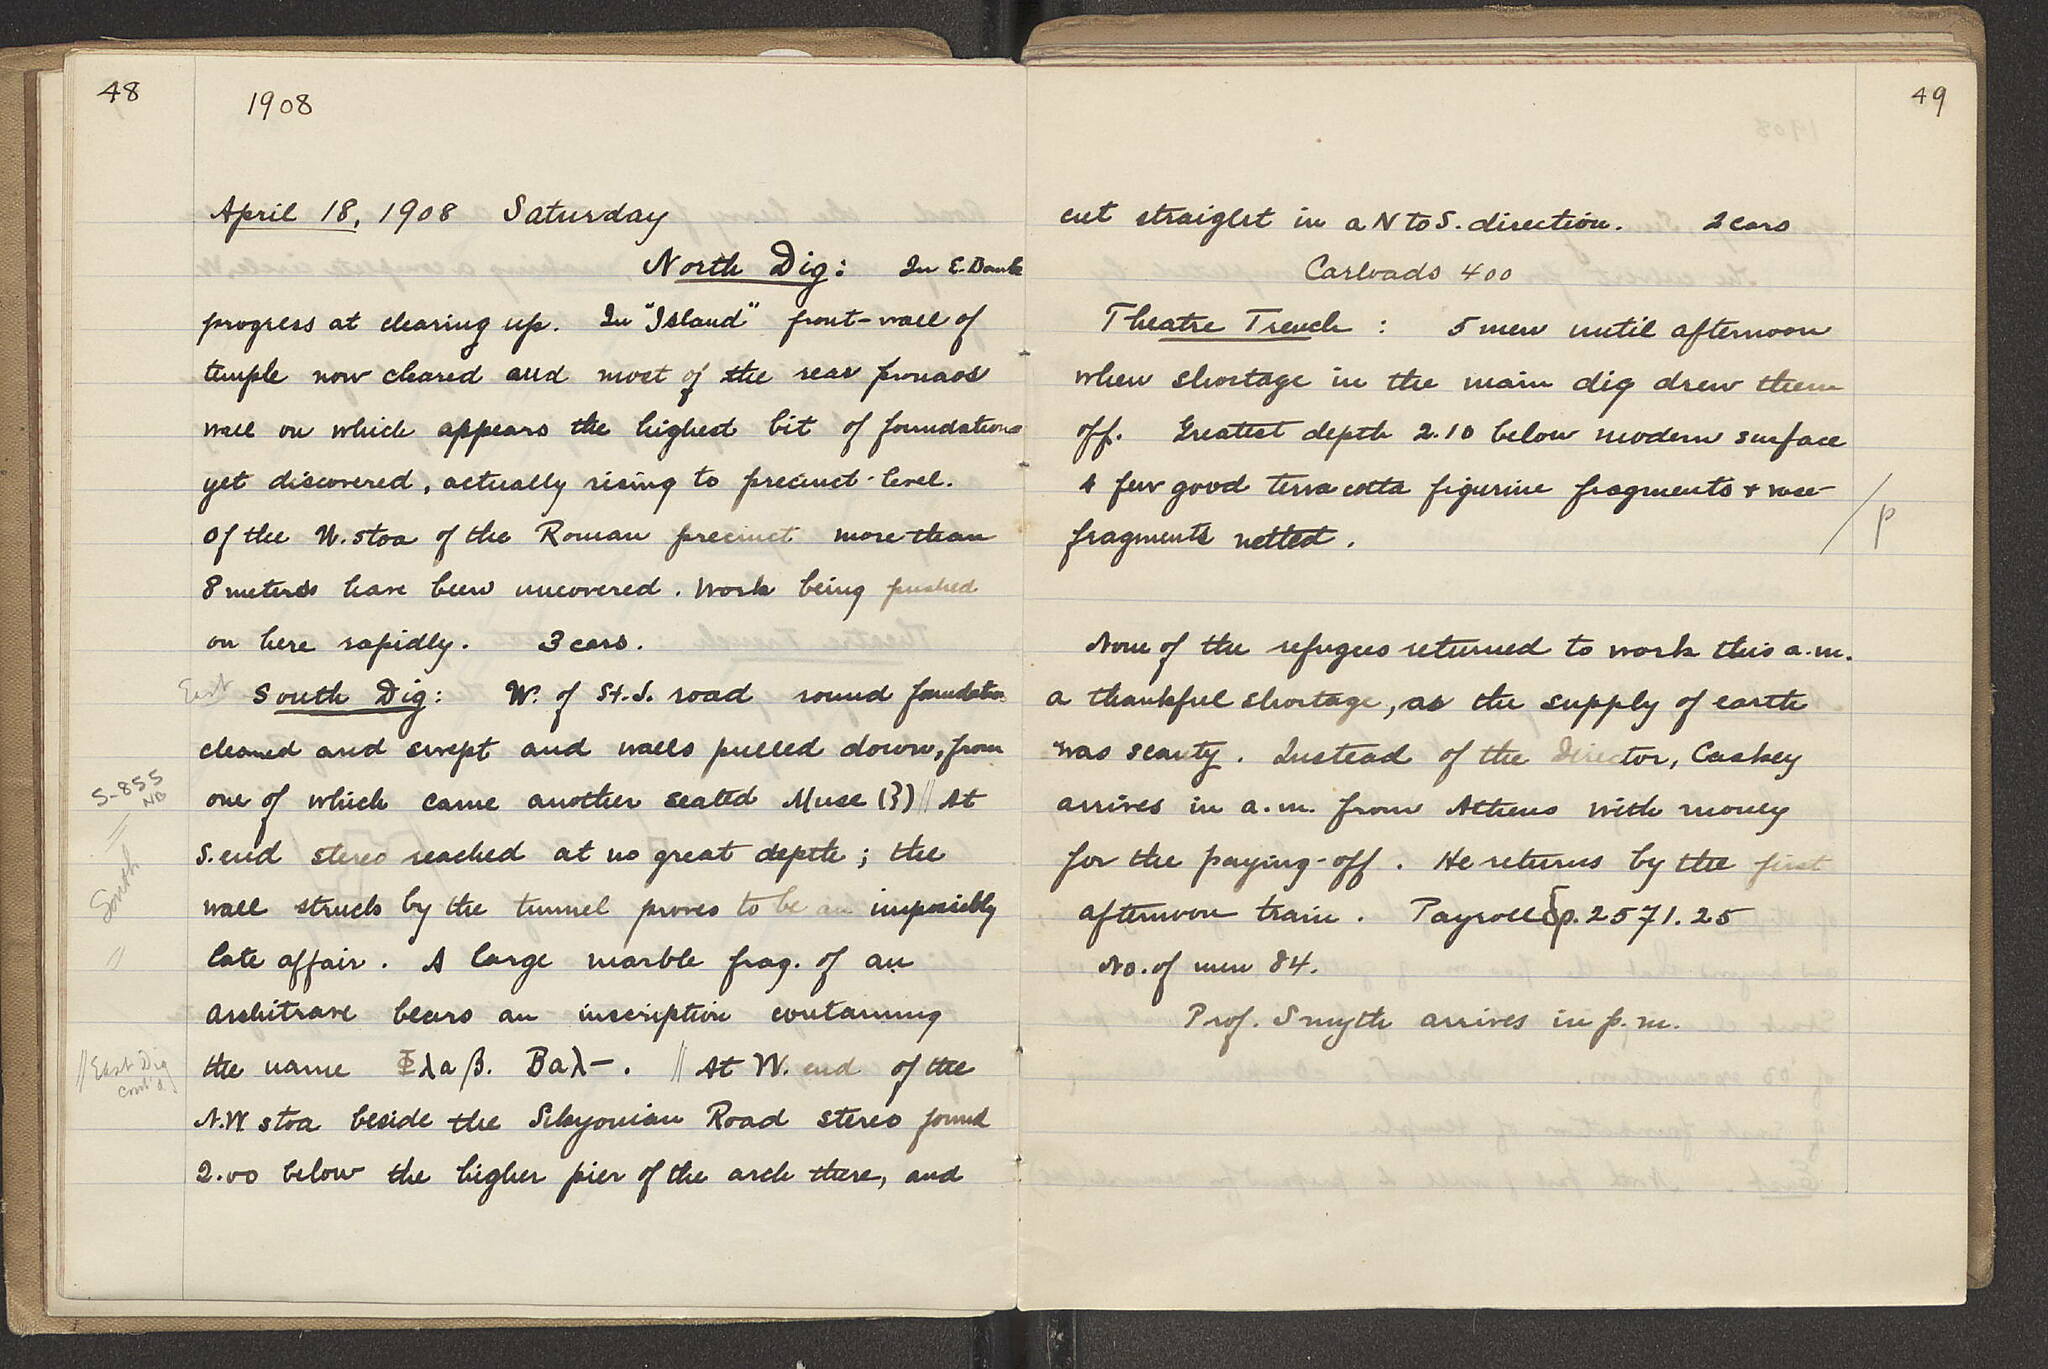 48
1908
April 18, 1908 Saturday
North Dig: In E. Bank
progress at clearing up. In "Island" front-wall of
temple now cleared and most of the rear pronaos
wall on which appears the highest bit of foundations
yet discovered, actually rising to precinct-level.
Of the W. stoa of the Roman precinct more than
8 meters have been uncovered. Work being pushed
on here rapidly. 3 cars.
East South Dig: W. of St. J. road round foundation
cleaned and swept and walls pulled down, from
S-855
NB
one of which came another seated Muse (?) // At
S. end stereo reached at no great depth; the
// South //
wall struck by the tunnel proves to be an impossibly
late affair. A large marble frag. of an
architrave bears an inscription containing
// East Dig
cont'd.
the name Φλαβ. Βαλ–. // At W. end of the
N.W stoa beside the Sikyonian Road stereo found
2.00 below the higher pier of the arch there, and
49
cut straight in a N to S. direction. 2 cars
Carloads 400
Theatre Trench: 5 men until afternoon
when shortage in the main dig drew them
off. Greatest depth 2.10 below modern surface
A few good terra cotta figurine fragments + vase
fragments netted.
/ p
None of the refugees returned to work this a.m.
a thankful shortage, as the supply of earth
was scanty. Instead of the Director, Caskey
arrives in a.m. from Athens with money
for the paying-off. He returns by the first
afternoon train. Payroll δρ. 2571.25
No. of men 84.
Prof. Smyth arrives in p.m.